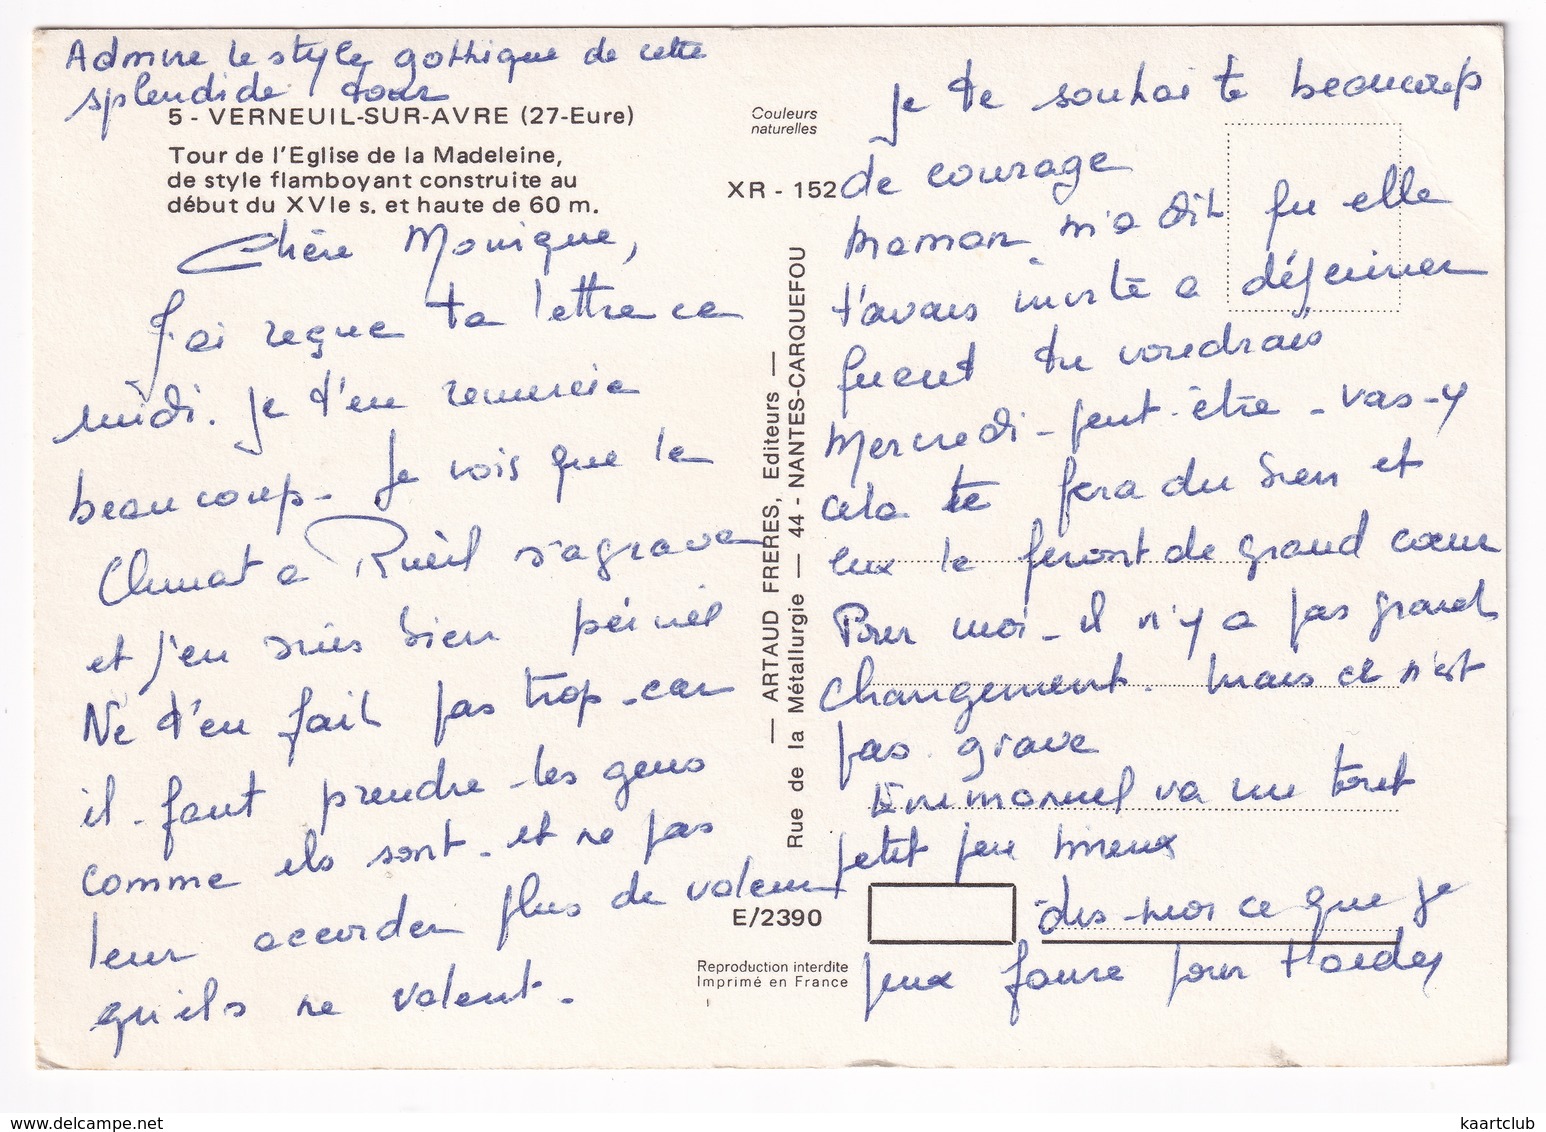 Admire le style gothique de cette
splendide tour
5 - VERNEUIL-SUR-AVRE (27-Eure)
Tour de l'Eglise de la Madeleine,
de style flamboyant construite au
début du XVIe s. et haute de 60 m.
Chère Monique,
J'ai reçue ta lettre ce
midi. Je t'en remercie
beaucoup - Je vois que le
Climat a Rueil s'agrave
et j'en suis bien peinée
Ne t'en fait pas trop - car
il - faut prendre - les gens
comme ils sont - et ne pas
leur accorder plus de valeur
qu'ils ne valent -
Couleurs
naturelles
XR - 152
— ARTAUD FRERES, Editeurs —
Rue de la Métallurgie — 44 - NANTES-CARQUEFOU
E/2390
Reproduction interdite
Imprimé en France
Je te souhaite beaucoup
de courage
Maman m'a dit qu elle
t'avais invité a déjeuner
quent tu voudrais
Mercredi - peut-être - vas-y
cela te fera du bien et
eux le feront de grand coeur
Pour moi - il n'y a pas grand
changement. Mais ce n'est
pas grave
Emmanuel va un tout
petit peu mieux
dis-moi ce que je
peux faire pour t'aider
kaartclub